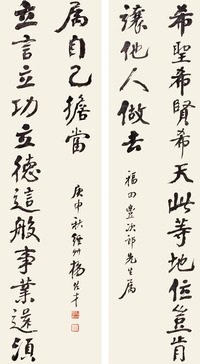 希聖希賢希天此等地位豈肯
讓他人做去
福田豊次郎先生属
立言立功立德這般事業還須
属自己擔當
庚申秋 楊